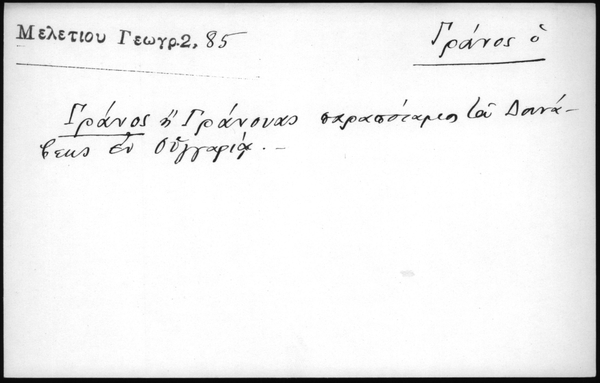 Μελετίου Γεωγρ. 2, 85
Γράνος ὁ
Γράνος ἢ Γράνουας παραπόταμος τοῦ Δουνά-
βεως ἐν Οὑγγαρίᾳ. —